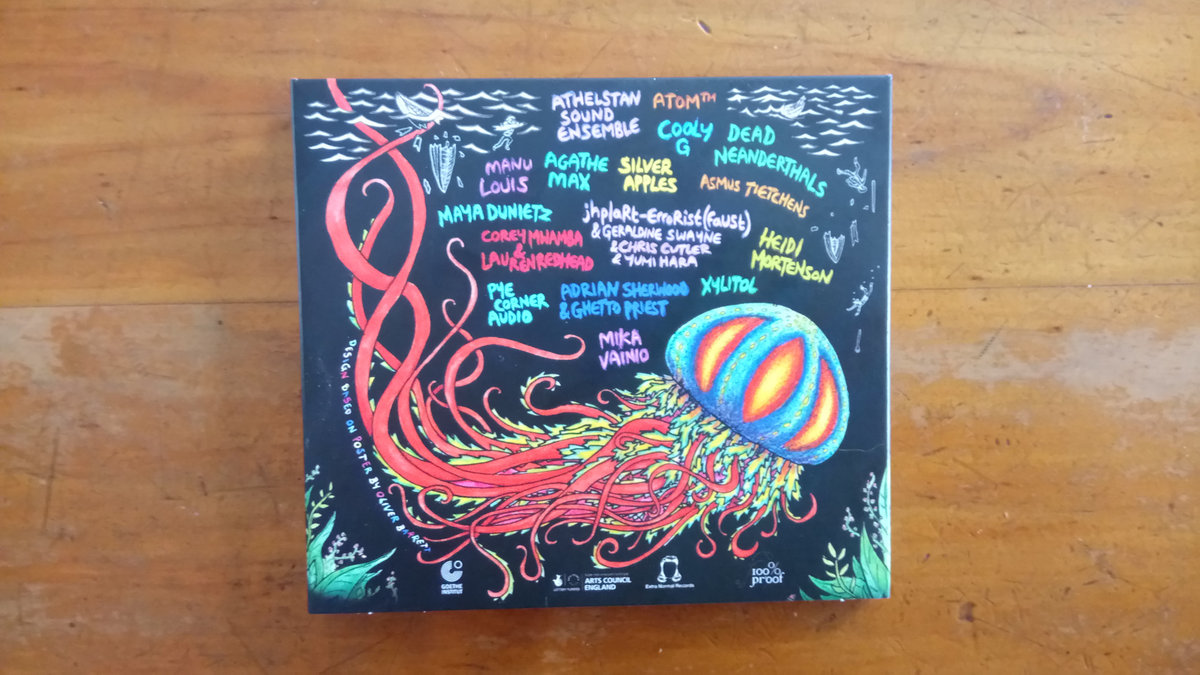 ATHELSTAN
SOUND
ENSEMBLE
ATOM™
COOLY
G
DEAD
NEANDERTHALS
MANU
LOUIS
AGATHE
MAX
SILVER
APPLES
ASMUS TIETCHENS
MAYA DUNIETZ
jhplaRt-ErroRist(faust)
& GERALDINE SWAYNE
& CHRIS CUTLER
& YUMI HARA
COREY MWAMBA
&
LAUREN REDHEAD
HEIDI
MORTENSON
PYE
CORNER
AUDIO
ADRIAN SHERWOOD
& GHETTO PRIEST
XYLITOL
MIKA
VAINIO
DESIGN BASED ON POSTER BY OLIVER BARRETT
GOETHE
INSTITUT
LOTTERY FUNDED
ARTS COUNCIL
ENGLAND
Extra Normal Records
100%
proof